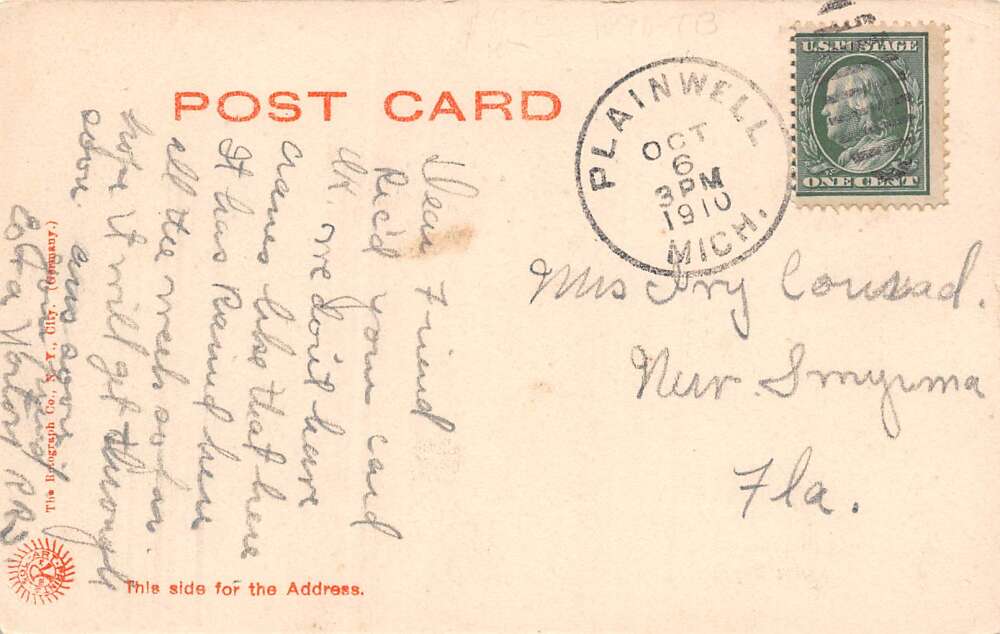 POST CARD
U.S. POSTAGE
ONE CENT
PLAINWELL
OCT
6
3 PM
1910
MICH.
Dear Friend
Rec'd your card
OK. we don't have
cranes like that here
It has Rained here
all the week so far
hope it will get through
soon
ans soon
Your friend
R R 2
Miss Ivy Conrad.
New Smyrna
Fla.
The Rotograph Co., N. Y., City. (Germany.)
This side for the Address.